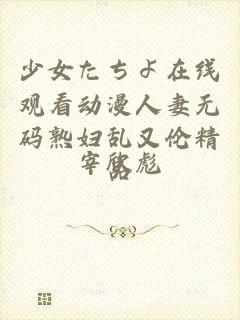 少女たちよ在线
观看动漫人妻无
码熟妇乱又伦精
品
宰欣彪